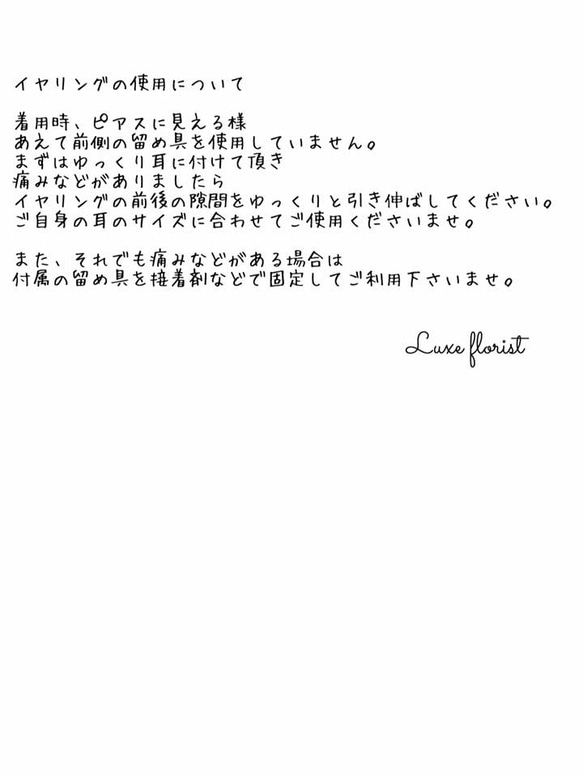 イヤリングの使用について
着用時、ピアスに見える様
あえて前側の留め具を使用していません。
まずはゆっくり耳に付けて頂き
痛みなどがありましたら
イヤリングの前後の隙間をゆっくりと引き伸ばしてください。
ご自身の耳のサイズに合わせてご使用くださいませ。
また、それでも痛みなどがある場合は
付属の留め具を接着剤などで固定してご利用下さいませ。
Luxe florist